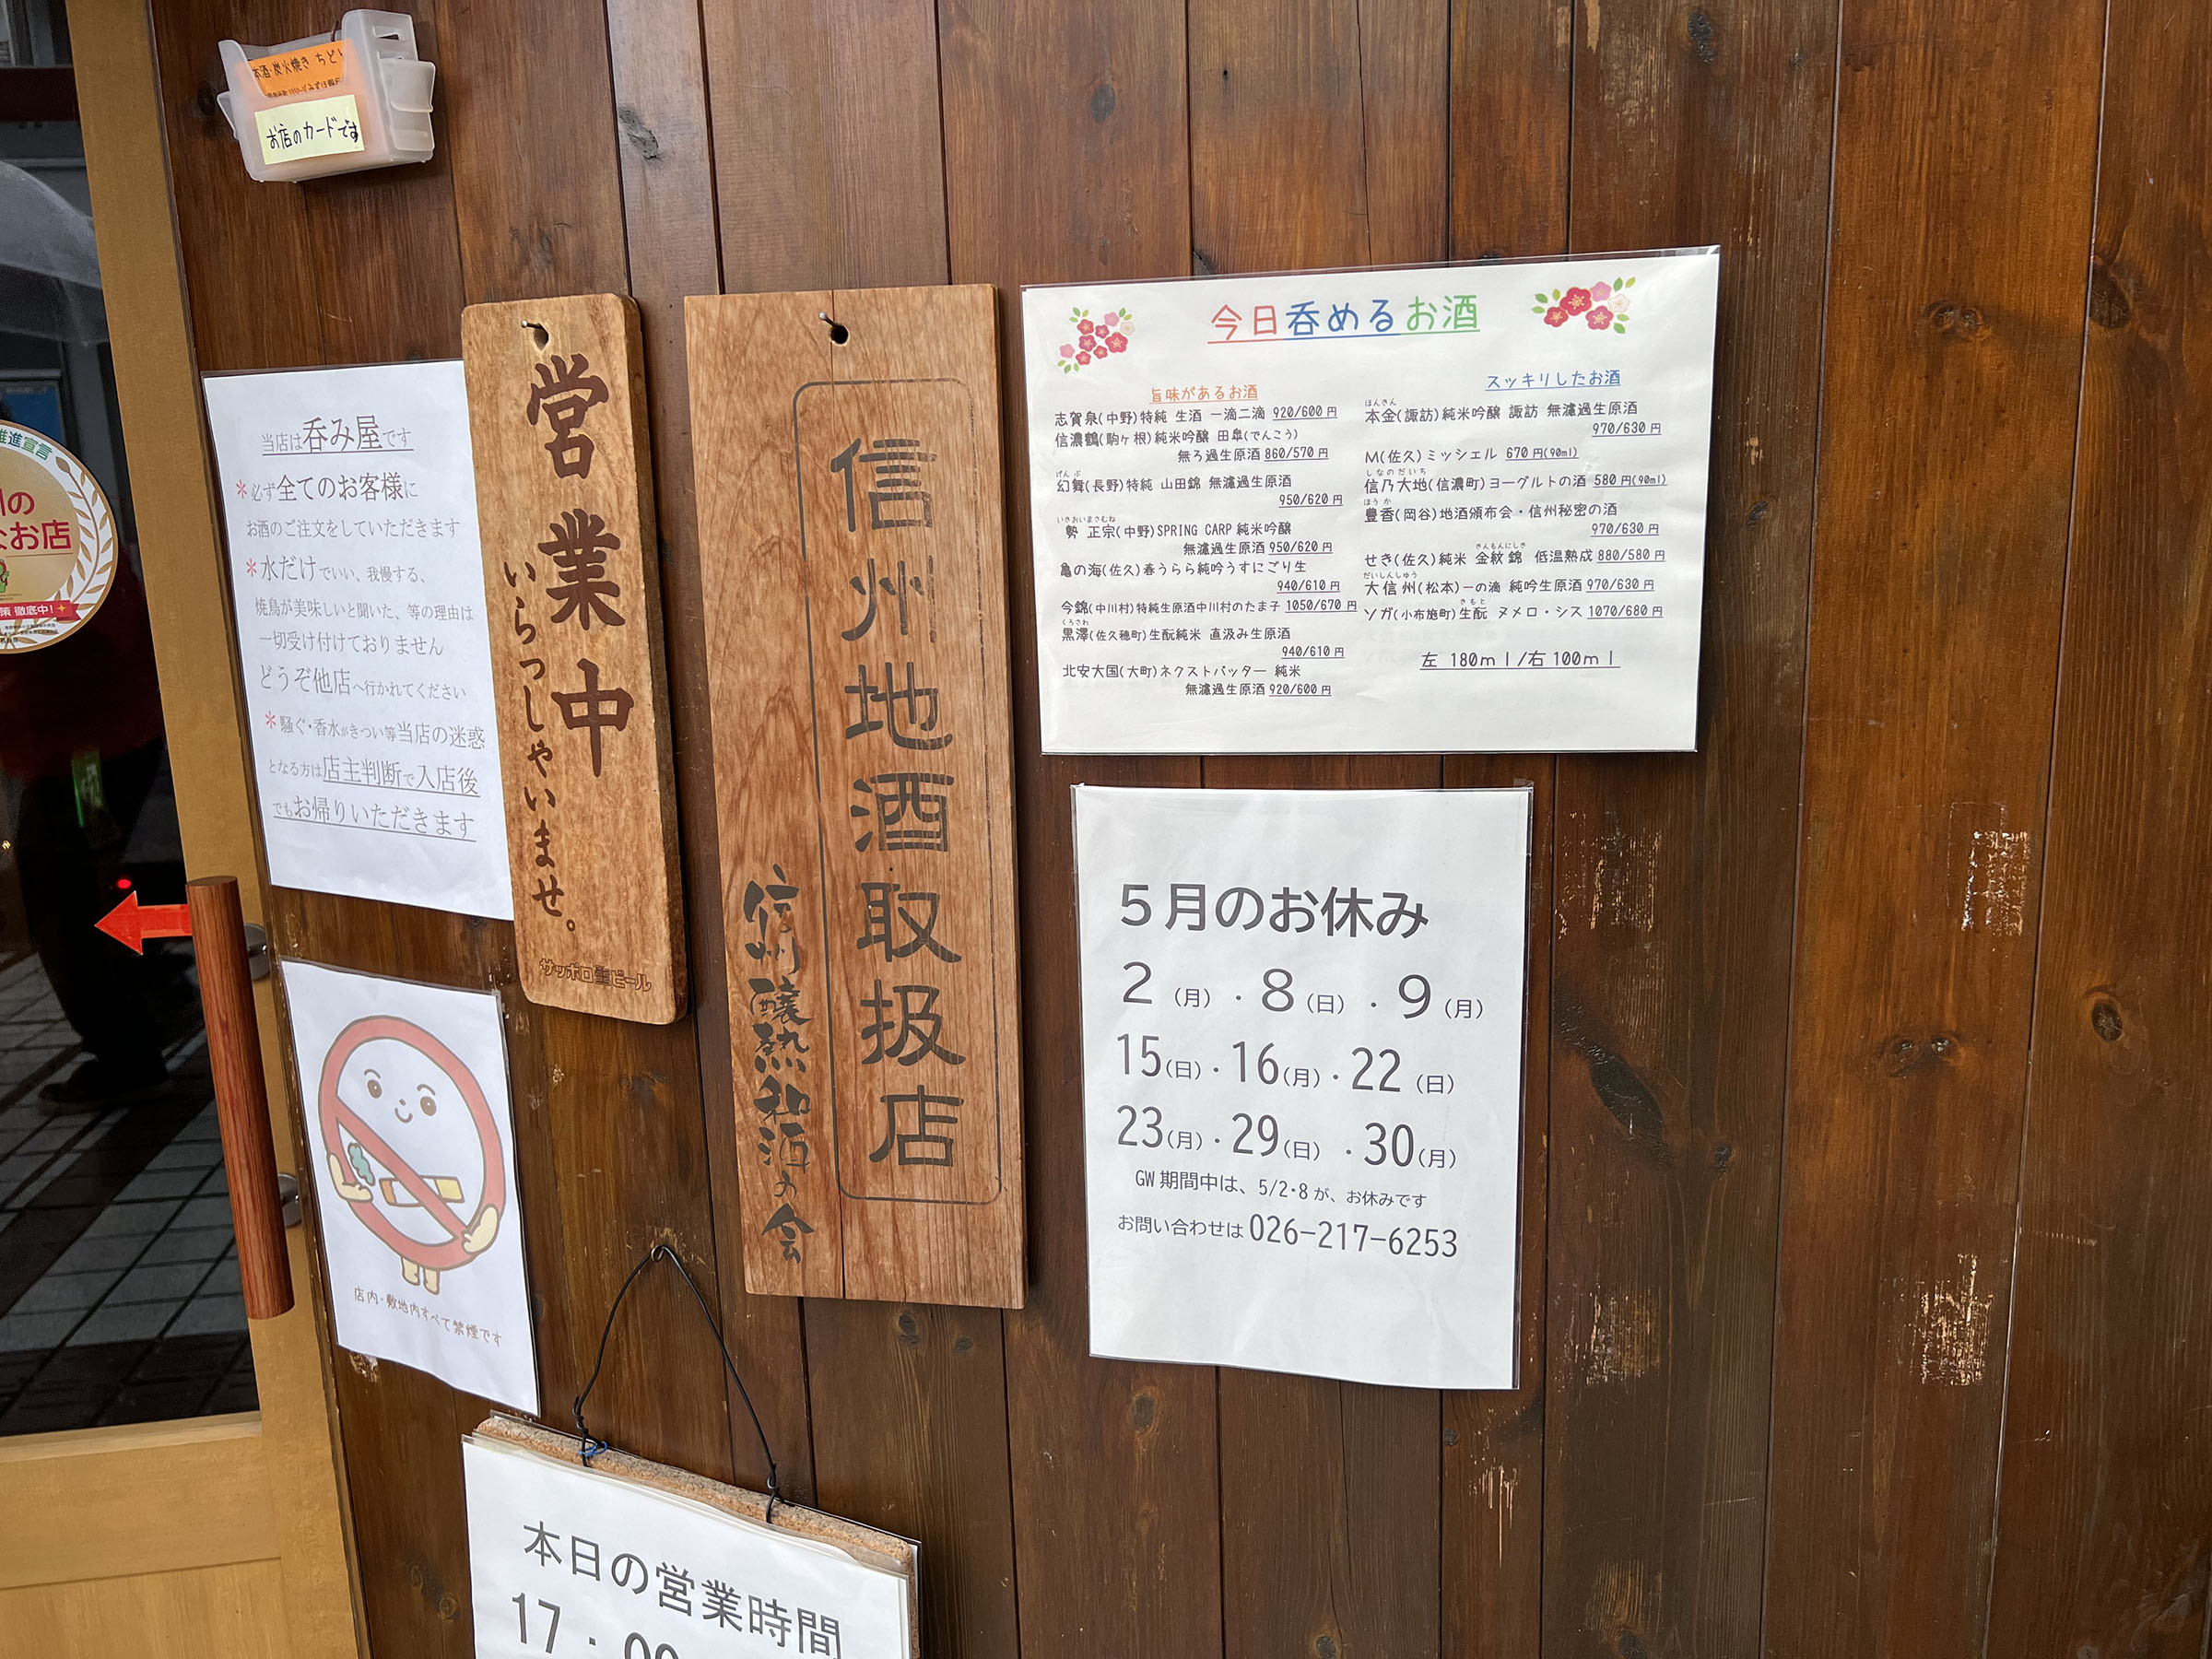 本酒・炭火焼き ちど
お店のカードです
推進宣言
のお店
策 徹底中!
当店は呑み屋です
*必ず全てのお客様に
お酒のご注文をしていただきます
*水だけでいい、我慢する、
焼鳥が美味しいと聞いた、等の理由は
一切受け付けておりません
どうぞ他店へ行かれてください
*騒ぐ・香水がきつい等当店の迷惑
となる方は店主判断で入店後
でもお帰りいただきます
営業中
いらっしゃいませ。
サッポロ生ビール
信州地酒取扱店
信州醸熱和酒の会
今日呑めるお酒
旨味があるお酒
志賀泉(中野)特純 生酒 一滴二滴 920/600円
信濃鶴(駒ヶ根)純米吟醸 田皐(でんこう)
無ろ過生原酒 860/570円
げんぶ
幻舞(長野)特純 山田錦 無濾過生原酒
950/620円
いきおいまさむね
勢 正宗(中野)SPRING CARP 純米吟醸
無濾過生原酒 950/620円
亀の海(佐久)春うらら純吟うすにごり生
940/610円
今錦(中川村)特純生原酒中川村のたま子 1050/670円
くろさわ
黒澤(佐久穂町)生酛純米 直汲み生原酒
940/610円
北安大国(大町)ネクストバッター 純米
無濾過生原酒 920/600円
スッキリしたお酒
ほんきん
本金(諏訪)純米吟醸 諏訪 無濾過生原酒
970/630円
M(佐久)ミッシェル 670円(90ml)
しなのだいち
信乃大地(信濃町)ヨーグルトの酒 580円(90ml)
ほうか
豊香(岡谷)地酒頒布会・信州秘密の酒
970/630円
きんもんにしき
せき(佐久)純米 金紋錦 低温熟成 880/580円
だいしんしゅう
大信州(松本)一の滴 純吟生原酒 970/630円
きもと
ソガ(小布施町)生酛 ヌメロ・シス 1070/680円
左 180ml/右100ml
5月のお休み
2(月)・8(日)・9(月)
15(日)・16(月)・22(日)
23(月)・29(日)・30(月)
GW期間中は、5/2・8が、お休みです
お問い合わせは 026-217-6253
店内・敷地内すべて禁煙です
本日の営業時間
17:00